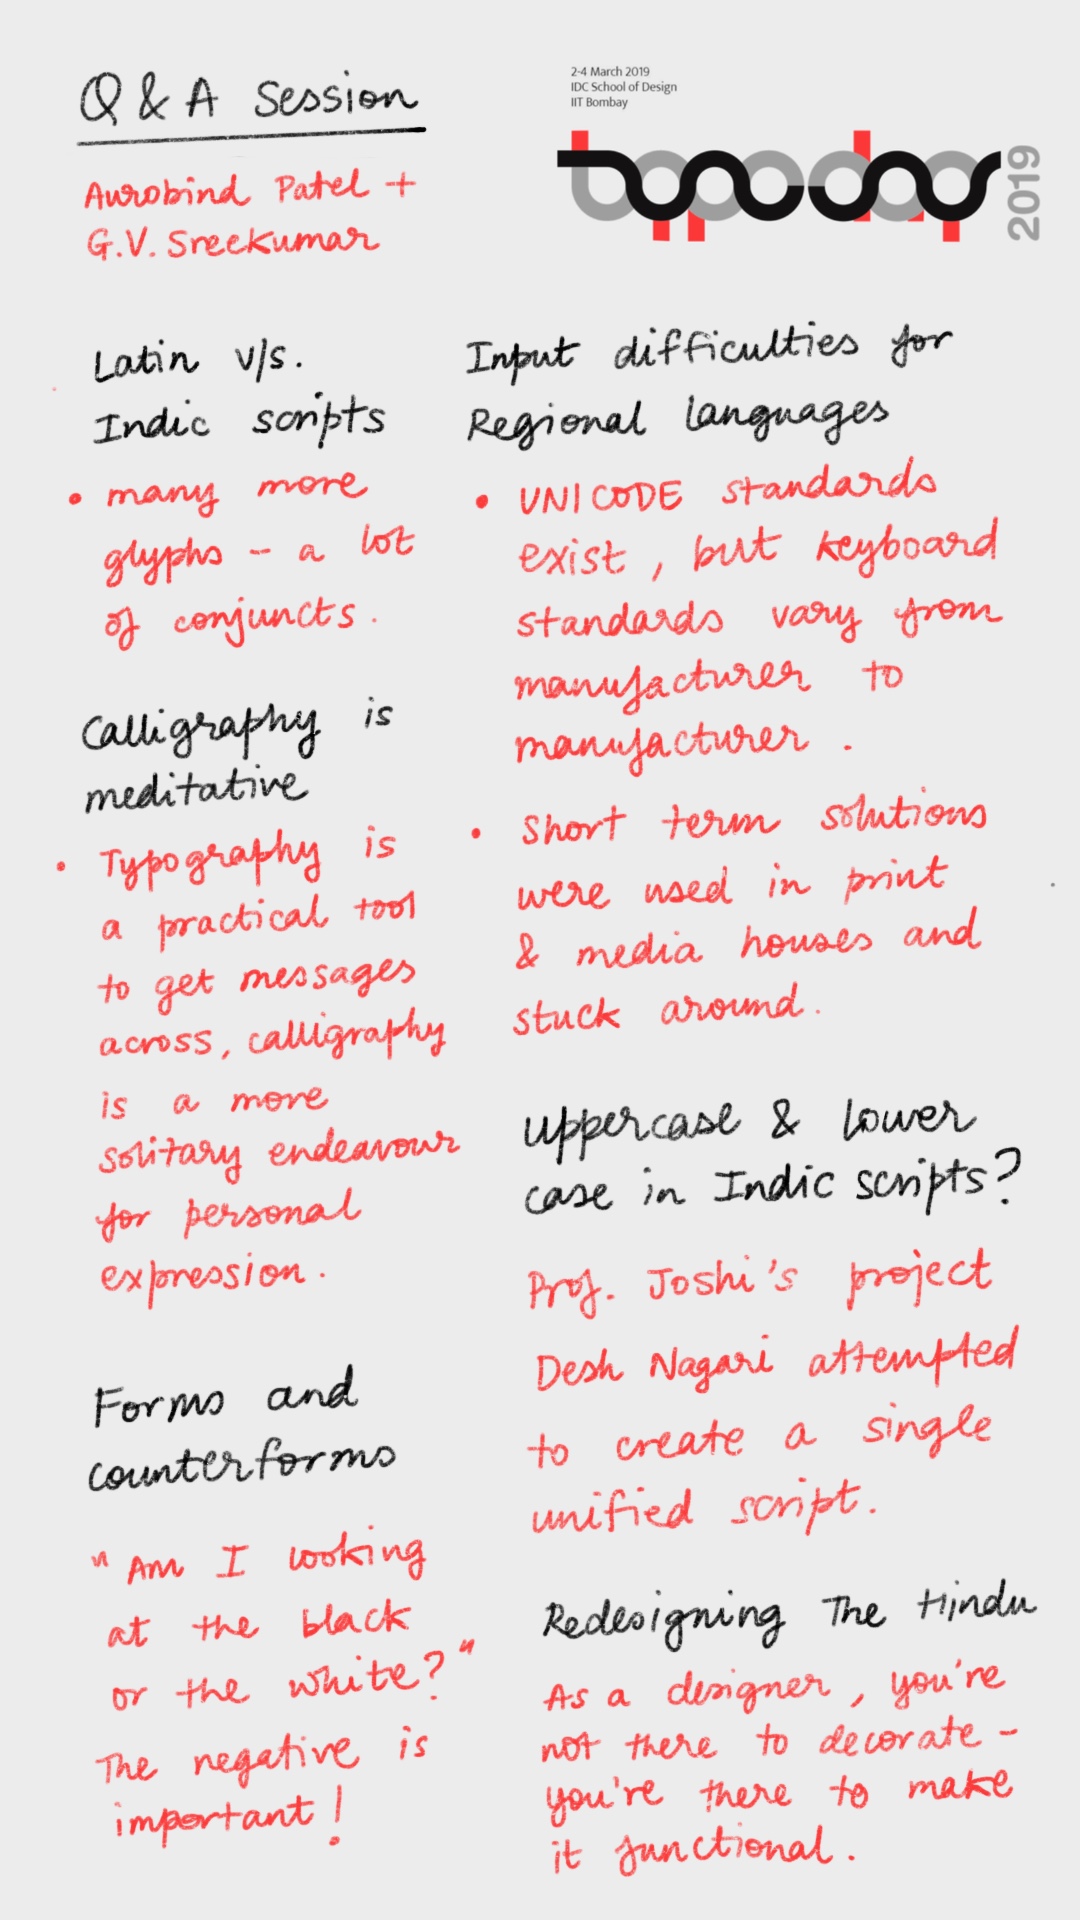 Q & A Session
Aurobind Patel +
G.V. Sreekumar
2-4 March 2019
IDC School of Design
IIT Bombay
typoday
2019
Latin v/s.
Indic scripts
• many more
glyphs - a lot
of conjuncts.
Calligraphy is
meditative
• Typography is
a practical tool
to get messages
across, calligraphy
is a more
solitary endeavour
for personal
expression.
Forms and
counterforms
"Am I looking
at the black
or the white?"
The negative is
important!
Input difficulties for
Regional languages
• UNICODE standards
exist, but keyboard
standards vary from
manufacturer to
manufacturer.
• Short term solutions
were used in print
& media houses and
stuck around.
Uppercase & lower
case in Indic scripts?
Prof. Joshi's project
Desh Nagari attempted
to create a single
unified script.
Redesigning The Hindu
As a designer, you're
not there to decorate -
you're there to make
it functional.